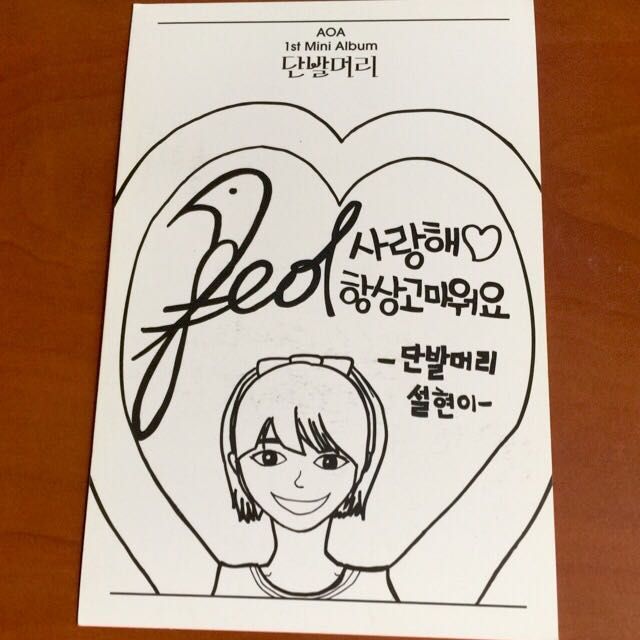 AOA
1st Mini Album
단발머리
Seol
사랑해♡
항상고마워요
-단발머리
설현이-